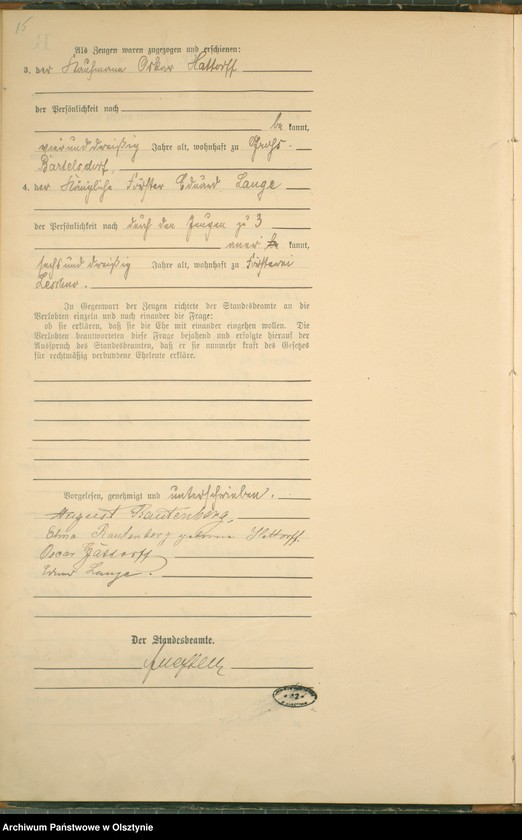 15
Als Zeugen waren zugezogen und erschienen:
3. der Kaufmann Oskar Hattorff
der Persönlichkeit nach
be kannt,
vierunddreißig Jahre alt, wohnhaft zu Groß-
Bartelsdorf,
4. der Königliche Förster Eduard Lange
der Persönlichkeit nach durch den Zeugen zu 3
aner kannt,
sechsunddreißig Jahre alt, wohnhaft zu Försterei
In Gegenwart der Zeugen richtete der Standesbeamte an die
Verlobten einzeln und nach einander die Frage:
ob sie erklären, daß sie die Ehe mit einander eingehen wollen. Die
Verlobten beantworteten diese Frage bejahend und erfolgte hierauf der
Ausspruch des Standesbeamten, daß er sie nunmehr kraft des Gesetzes
für rechtmäßig verbundene Eheleute erkläre.
Vorgelesen, genehmigt und unterschrieben.
August Rautenberg,
Rautenberg geborene Hattorff
Oscar Hattorff
Lange.
Der Standesbeamte.
Archiwum Państwowe w Olsztynie